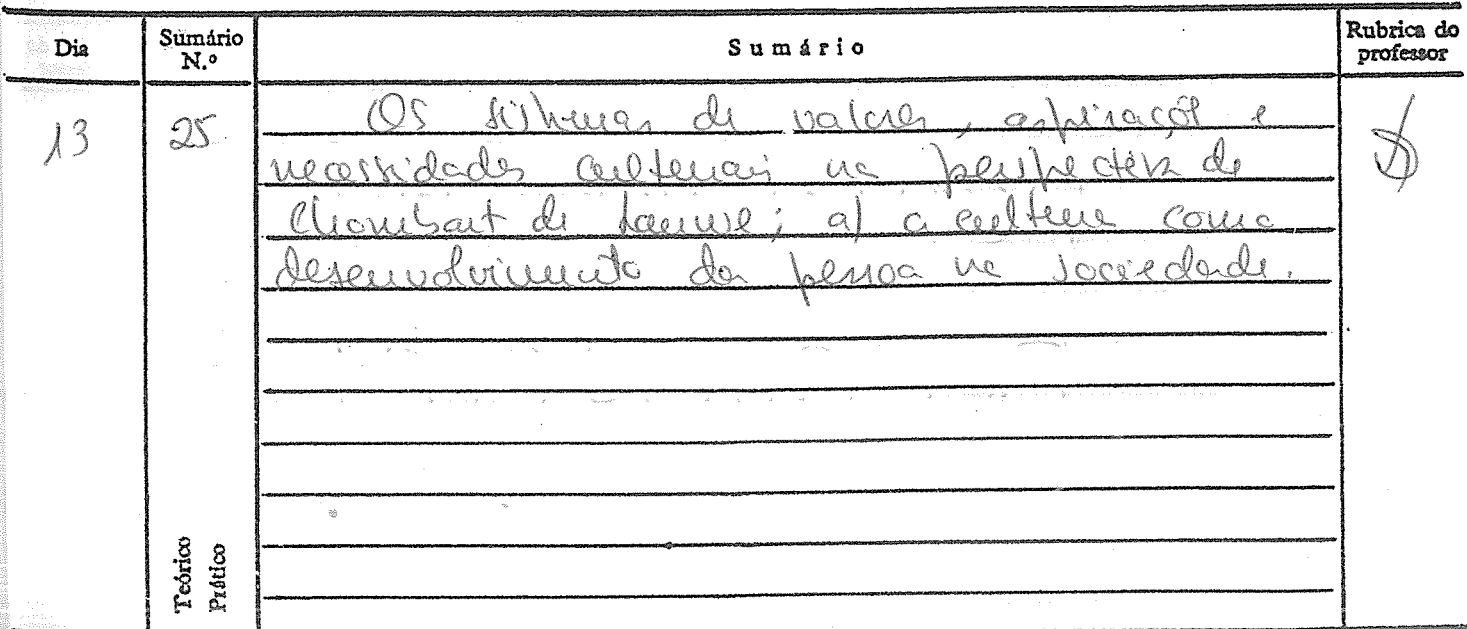 Dia Sumário N.º Sumário Rubrica do professor
13 25 Os sistemas de valores, aspirações e
necessidades culturais na perspectiva de
Chombart de Lauwe; a) a cultura como
desenvolvimento da pessoa na sociedade.
Teórico
Prático